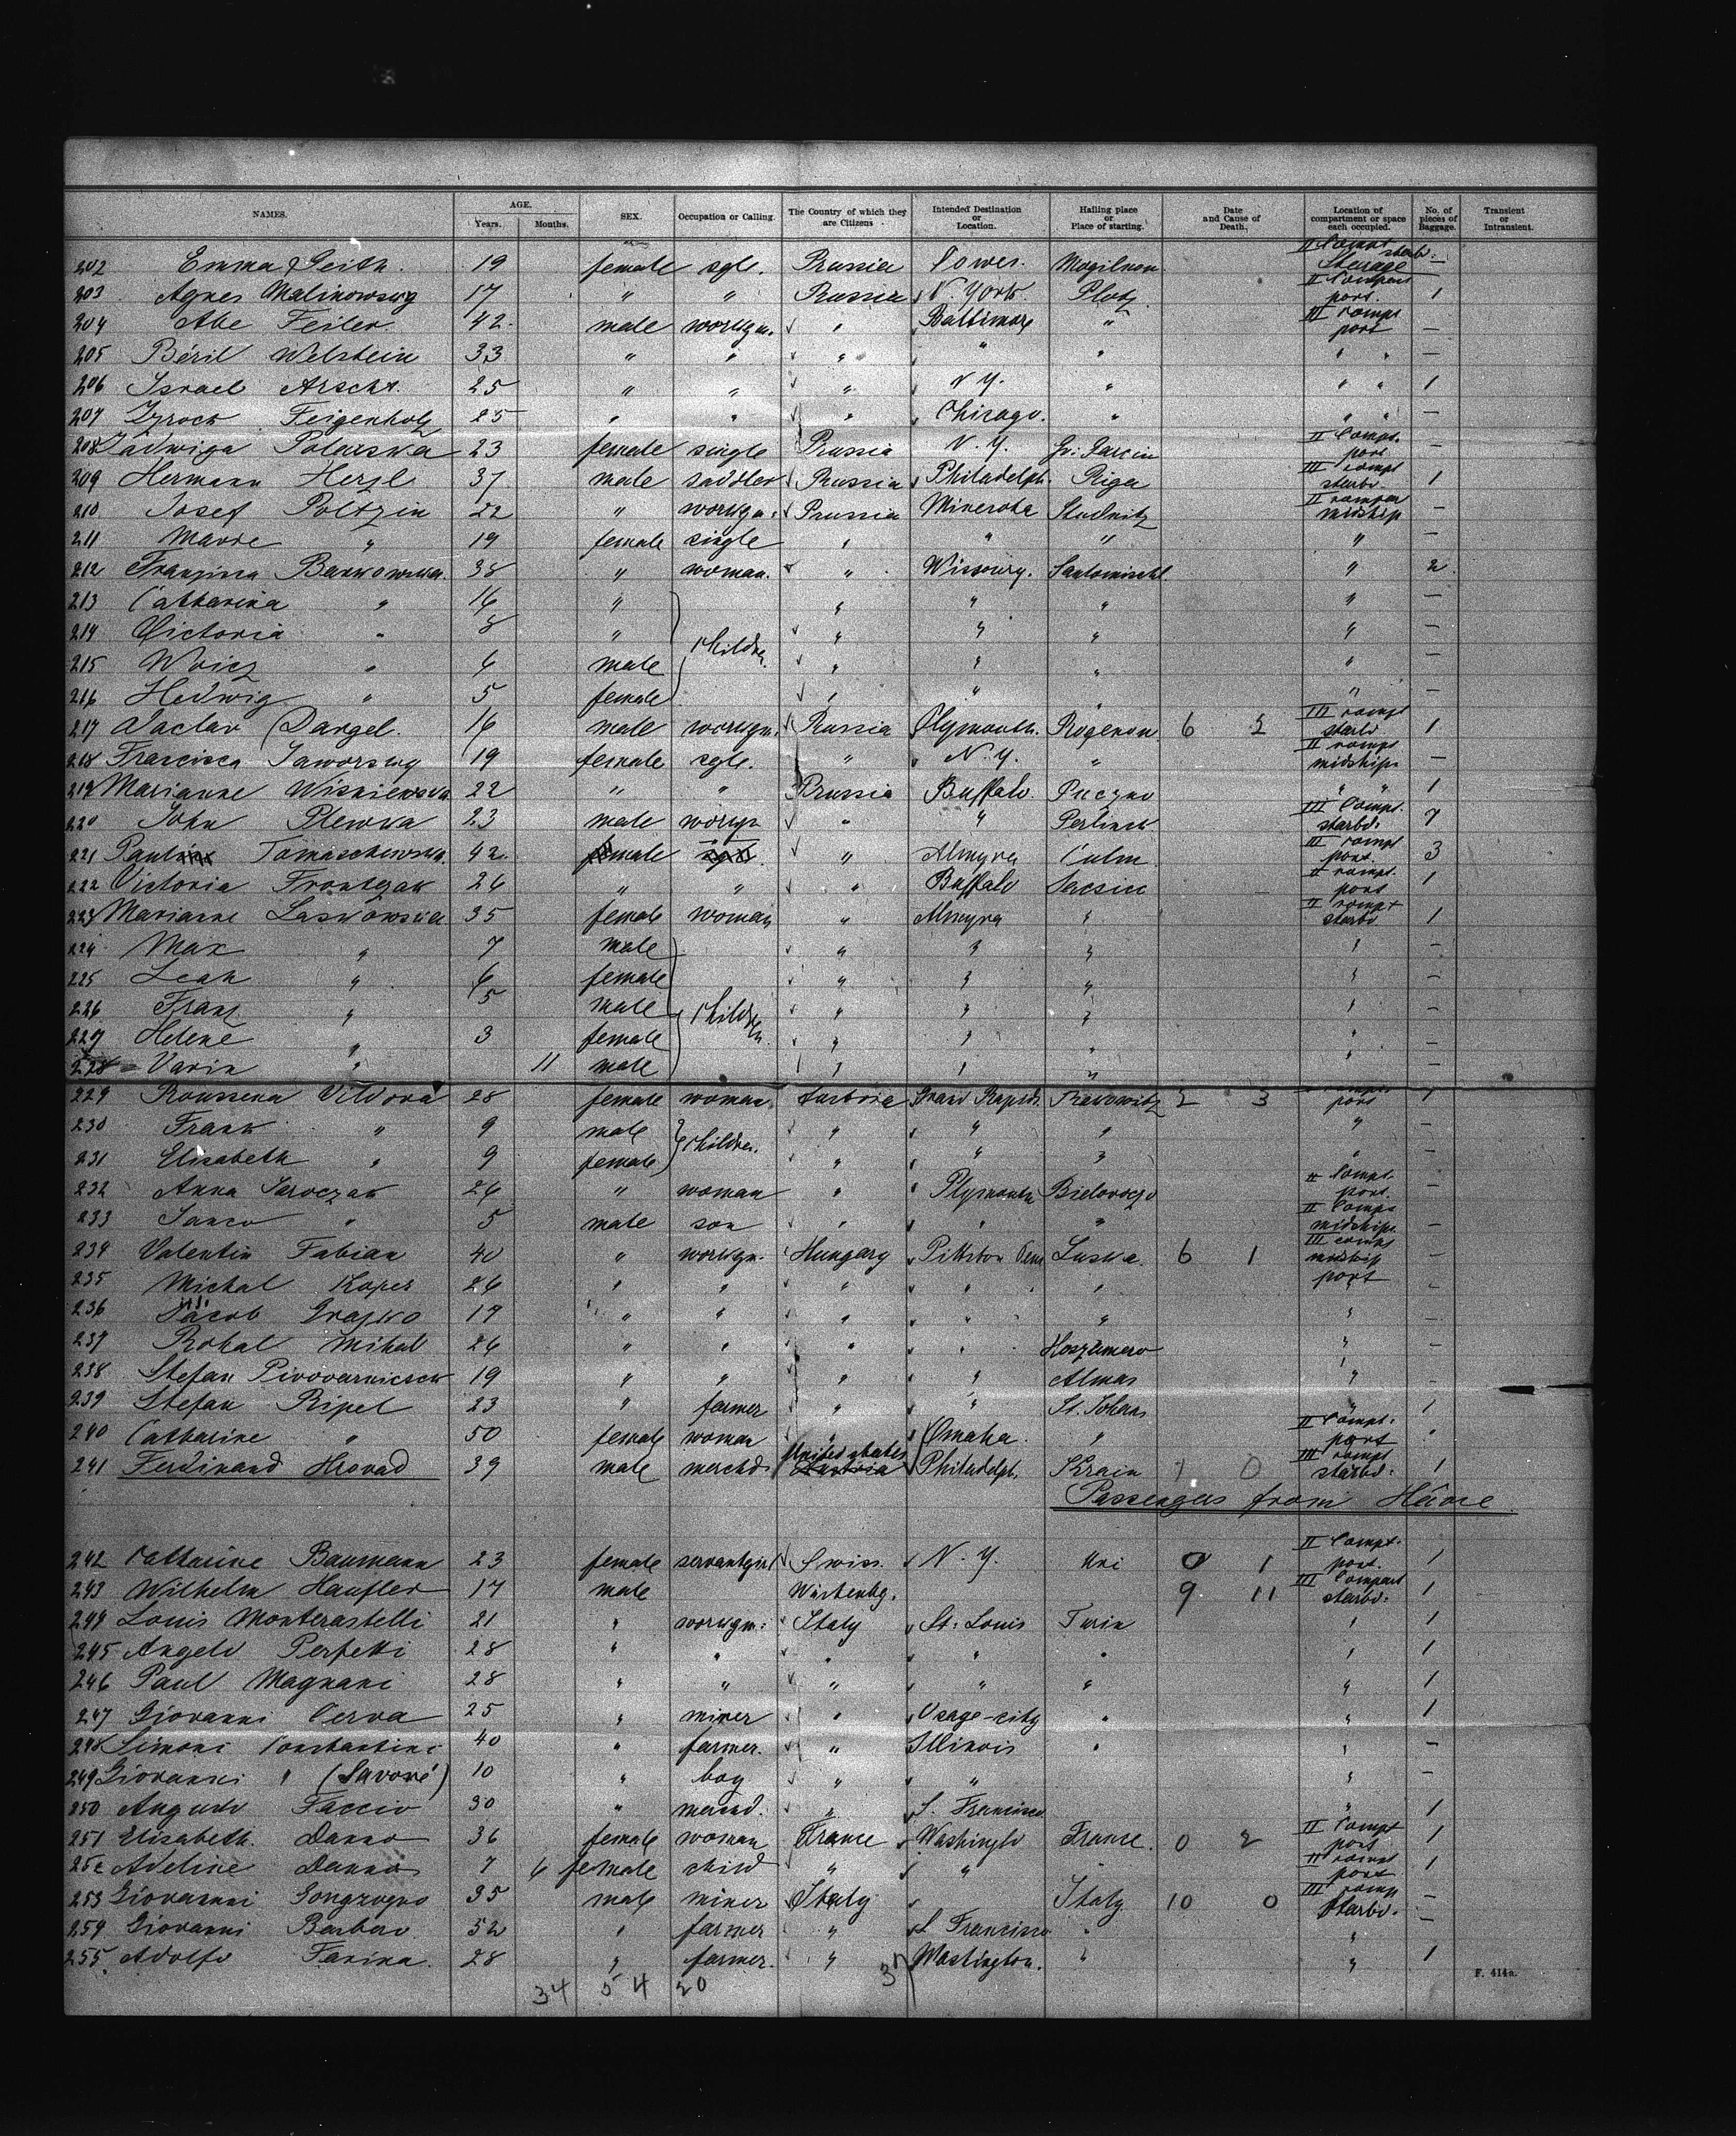 NAMES. AGE. Years. Months. SEX. Occupation or Calling. The Country of which they are Citizens Intended Destination or Location. Hailing place or Place of starting. Date and Cause of Death. Location of compartment or space each occupied. No. of pieces of Baggage. Transient or Intransient.
202 Emma Geith. 19 female sgle. Prussia Mogilnon II Compt starbd: Steerage —
203 Agnes Malinowsky 17 " " Russia N. York Plotz II Compart port. 1
204 Abe Feiler. 42. male workgm. " Baltimore " III compt port —
205 Beril Welstein 33 " " " " " " " —
206 Israel Arscht. 25 " " " N. Y. " " " 1
207 Feigenholz 25 " " " Chicago. " " " —
208 Jadwiga Polarska 23 female single Prussia N. Y. Gr: Garcin II Compt. port —
209 Hermann Herzl 37 male saddler Russia Philadelph. Riga III compt starbd. 1
210 Josef Poltzin 22 " workgm. Prussia Minesota Studnitz II compar midship —
211 19 female single " " " " —
212 Franzisca Bankowska. 38 " woman. " Missoury. Santomischl " 2.
213 Catharina " 16 " " " " " —
214 Victoria " 8 " Childre " " " " —
215 Woicz " 6 male " " " " —
216 Hedwig " 5 female " " " " —
217 Vaclav Dargel. 16 male workgm. Russia Plymouth. Rogenow 6 2 III compt starbd 1
218 Francisca Jaworsky 19 female sgle. " N. Y. " II compt midship —
219 Marianne Wisniewska 22 " " Prussia Buffalo. Puczno " " 1
220 John Plewka 23 male workgr " " Perlinek III Compt. starbd: 7
221 Paul Tomaschewska. 42. male " Almyra Culm. III compt port. 3
222 Victoria Frontzak 26 " " " Buffalo II compt. port 1
223 Marianne Laskowska 35 female woman " Almyra " II compt starbd. 1
224 Max " 7 male " " " " —
225 Leah " 6 female " " " " —
226 Franz " 5 male Children " " " " —
227 Helene " 3 female " " " " —
228 Varia " 11 male " " " " —
229 Roussena Vildova 28 female woman Austria Grand Rapids. Trakowitz 2 3 port 1
230 Frank " 9 male Childre. " " " " —
231 Elisabeth " 9 female " " " " —
232 Anna Jaroczak 26 " woman " Plymouth Bielovoczo II Compt. port. —
233 Janco " 5 male son " " " II Compt midship. —
234 Valentin Fabian 40 " workgm. Hungary Pittston Penn Luska. 6 1 III compt midship —
235 Michal Kopes 26 " " " " " port —
236 Jacob Grajko 17 " " " " " " —
237 Rohal Mihal 26 " " " " Hoszumero " —
238 Stefan Pivovarnicsek 19 " " " " Almas " —
239 Stefan Ripel 23 " farmer " " St. Johans " 1
240 Catharine " 50 female woman " Omaha. " II Compt: port "
241 Ferdinand Hrovad 39 male merchd. United states Philadelph. Krain 1 0 III compt starbd: 1
Passengers from Hâvre
242 Catharine Baumann 23 female servantgirl Swiss. N. Y. Uri 0 1 II Compt. port. 1
243 Wilhelm Haufler 17 male Würtembg. 9 11 III Compart starbd: 1
244 Louis Monterastelli 21 " workgm: Italy St: Louis Turin " 1
245 Angelo Perfetti 28 " " " " " " 1
246 Paul Magnani 28 " " " " " " 1
247 Giovanni Cerva 25 " miner " Osage-city " " 1
248 Simoni Constantini 40 " farmer. " Illinois " " —
249 Giovanni " (Savoné) 10 " boy " " " —
250 Angelo Faccio 30 " merchd. " S. Francisco " 1
251 Elisabeth. Danno 36 female woman France Washingto France. 0 2 II Compt port 1
252 Adeline Danno 7 6 female child " " " II compt port 1
253 Giovanni Gongrogno 35 male miner Italy Italy 10 0 III comp starbd. —
254 Giovanni Barbero 52 " farmer " S Francisco " " —
255. Adolfo Farina. 28 " farmer. " Washington. " " 1
34 54 20 37
F. 414a.